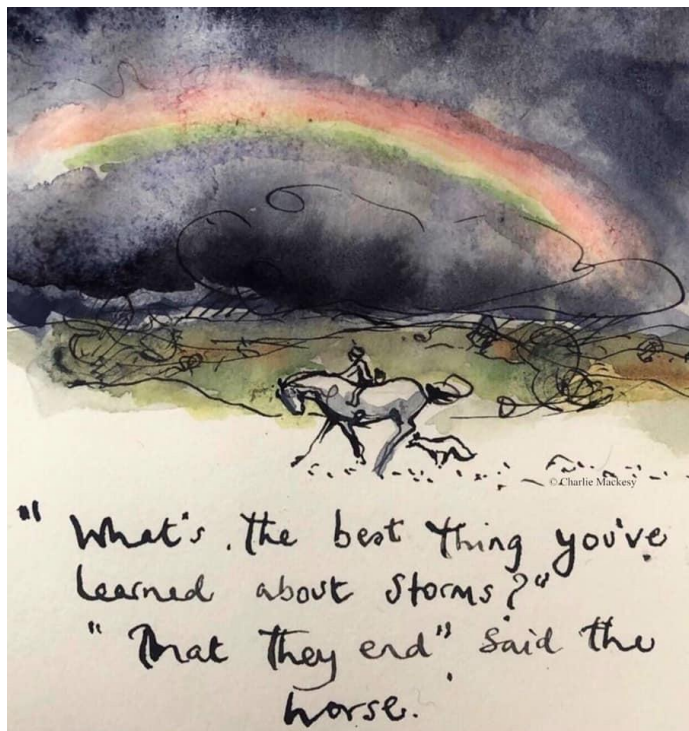 © Charlie Mackesy
"What's the best thing you've
learned about storms?"
"That they end" said the
horse.